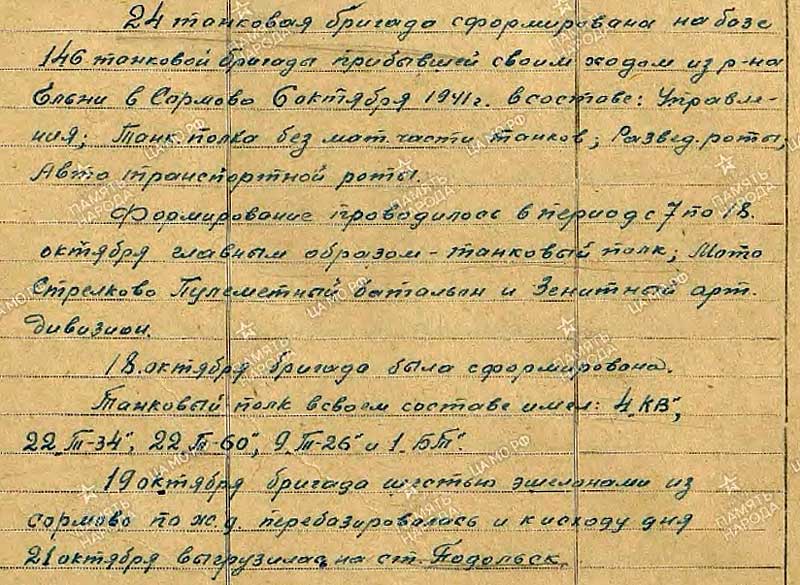 24 танковая бригада сформирована на базе
146 танковой бригады прибывшей своим ходом из р-на
Ельни в Сормово 6 октября 1941г. в составе: Управле-
ния; Танк. полка без мат. части танков; Развед. роты;
Авто транспортной роты.
Формирование проводилось в период с 7 по 18.
октября главным образом - танковый полк; Мото
Стрелково Пулеметный батальон и Зенитный арт.
дивизион.
18. октября бригада была сформирована.
Танковый полк в своем составе имел: 4 „КВ",
22 „Т-34"; 22 „Т-60", 9 „Т-26" и 1 „БТ".
19 октября бригада шестью эшелонами из
сормово по ж.д. перебазировалась и к исходу дня
21 октября выгрузилась на ст. Подольск.
ПАМЯТЬ НАРОДА
ЦАМО.РФ